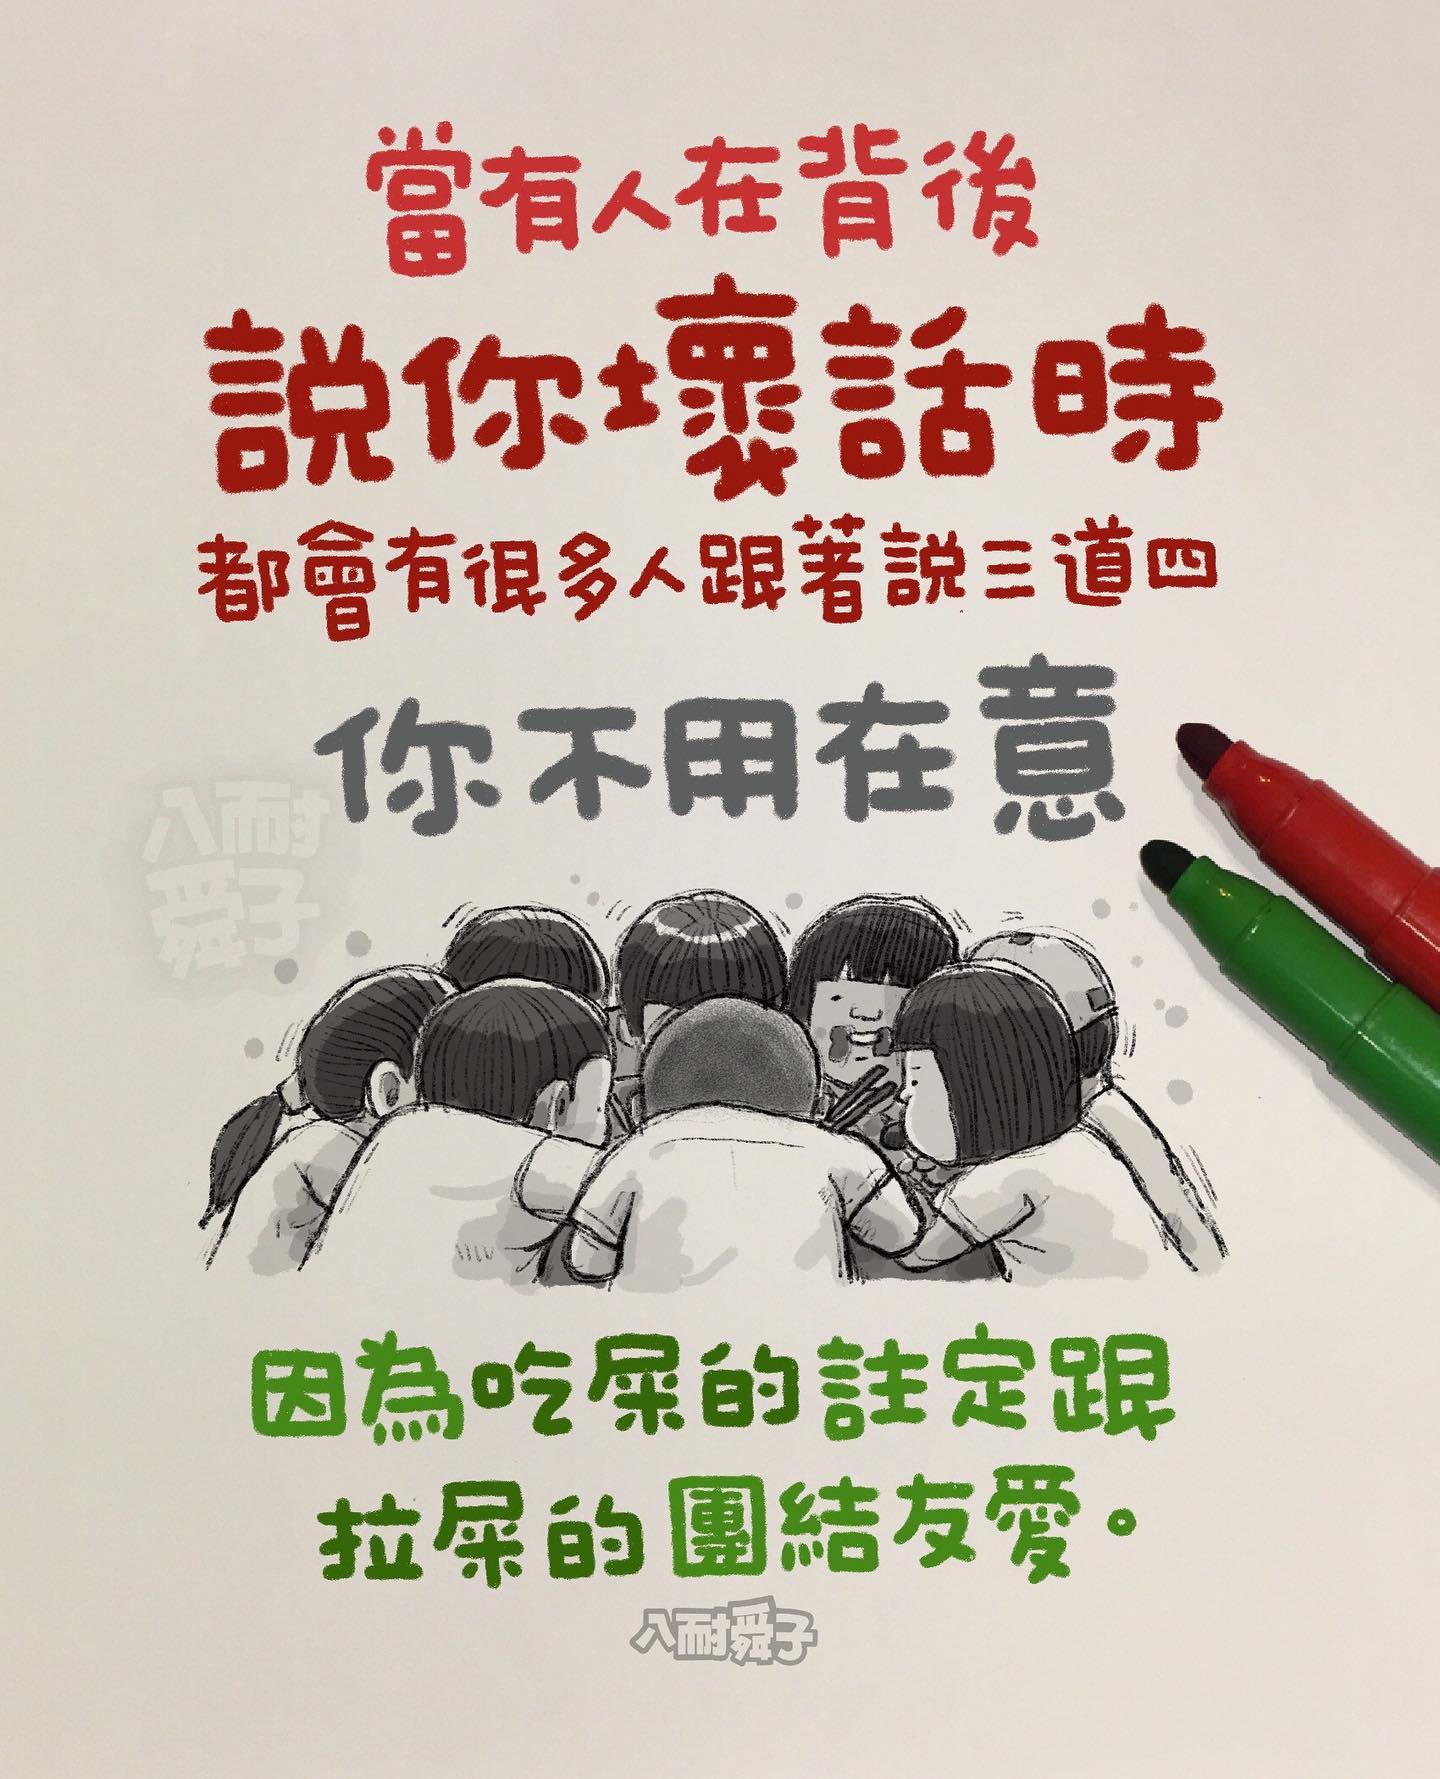 當有人在背後
説你壞話時
都會有很多人跟著説三道四
你不用在意
八耐
舜子
因為吃屎的註定跟
拉屎的團結友愛。
八耐舜子